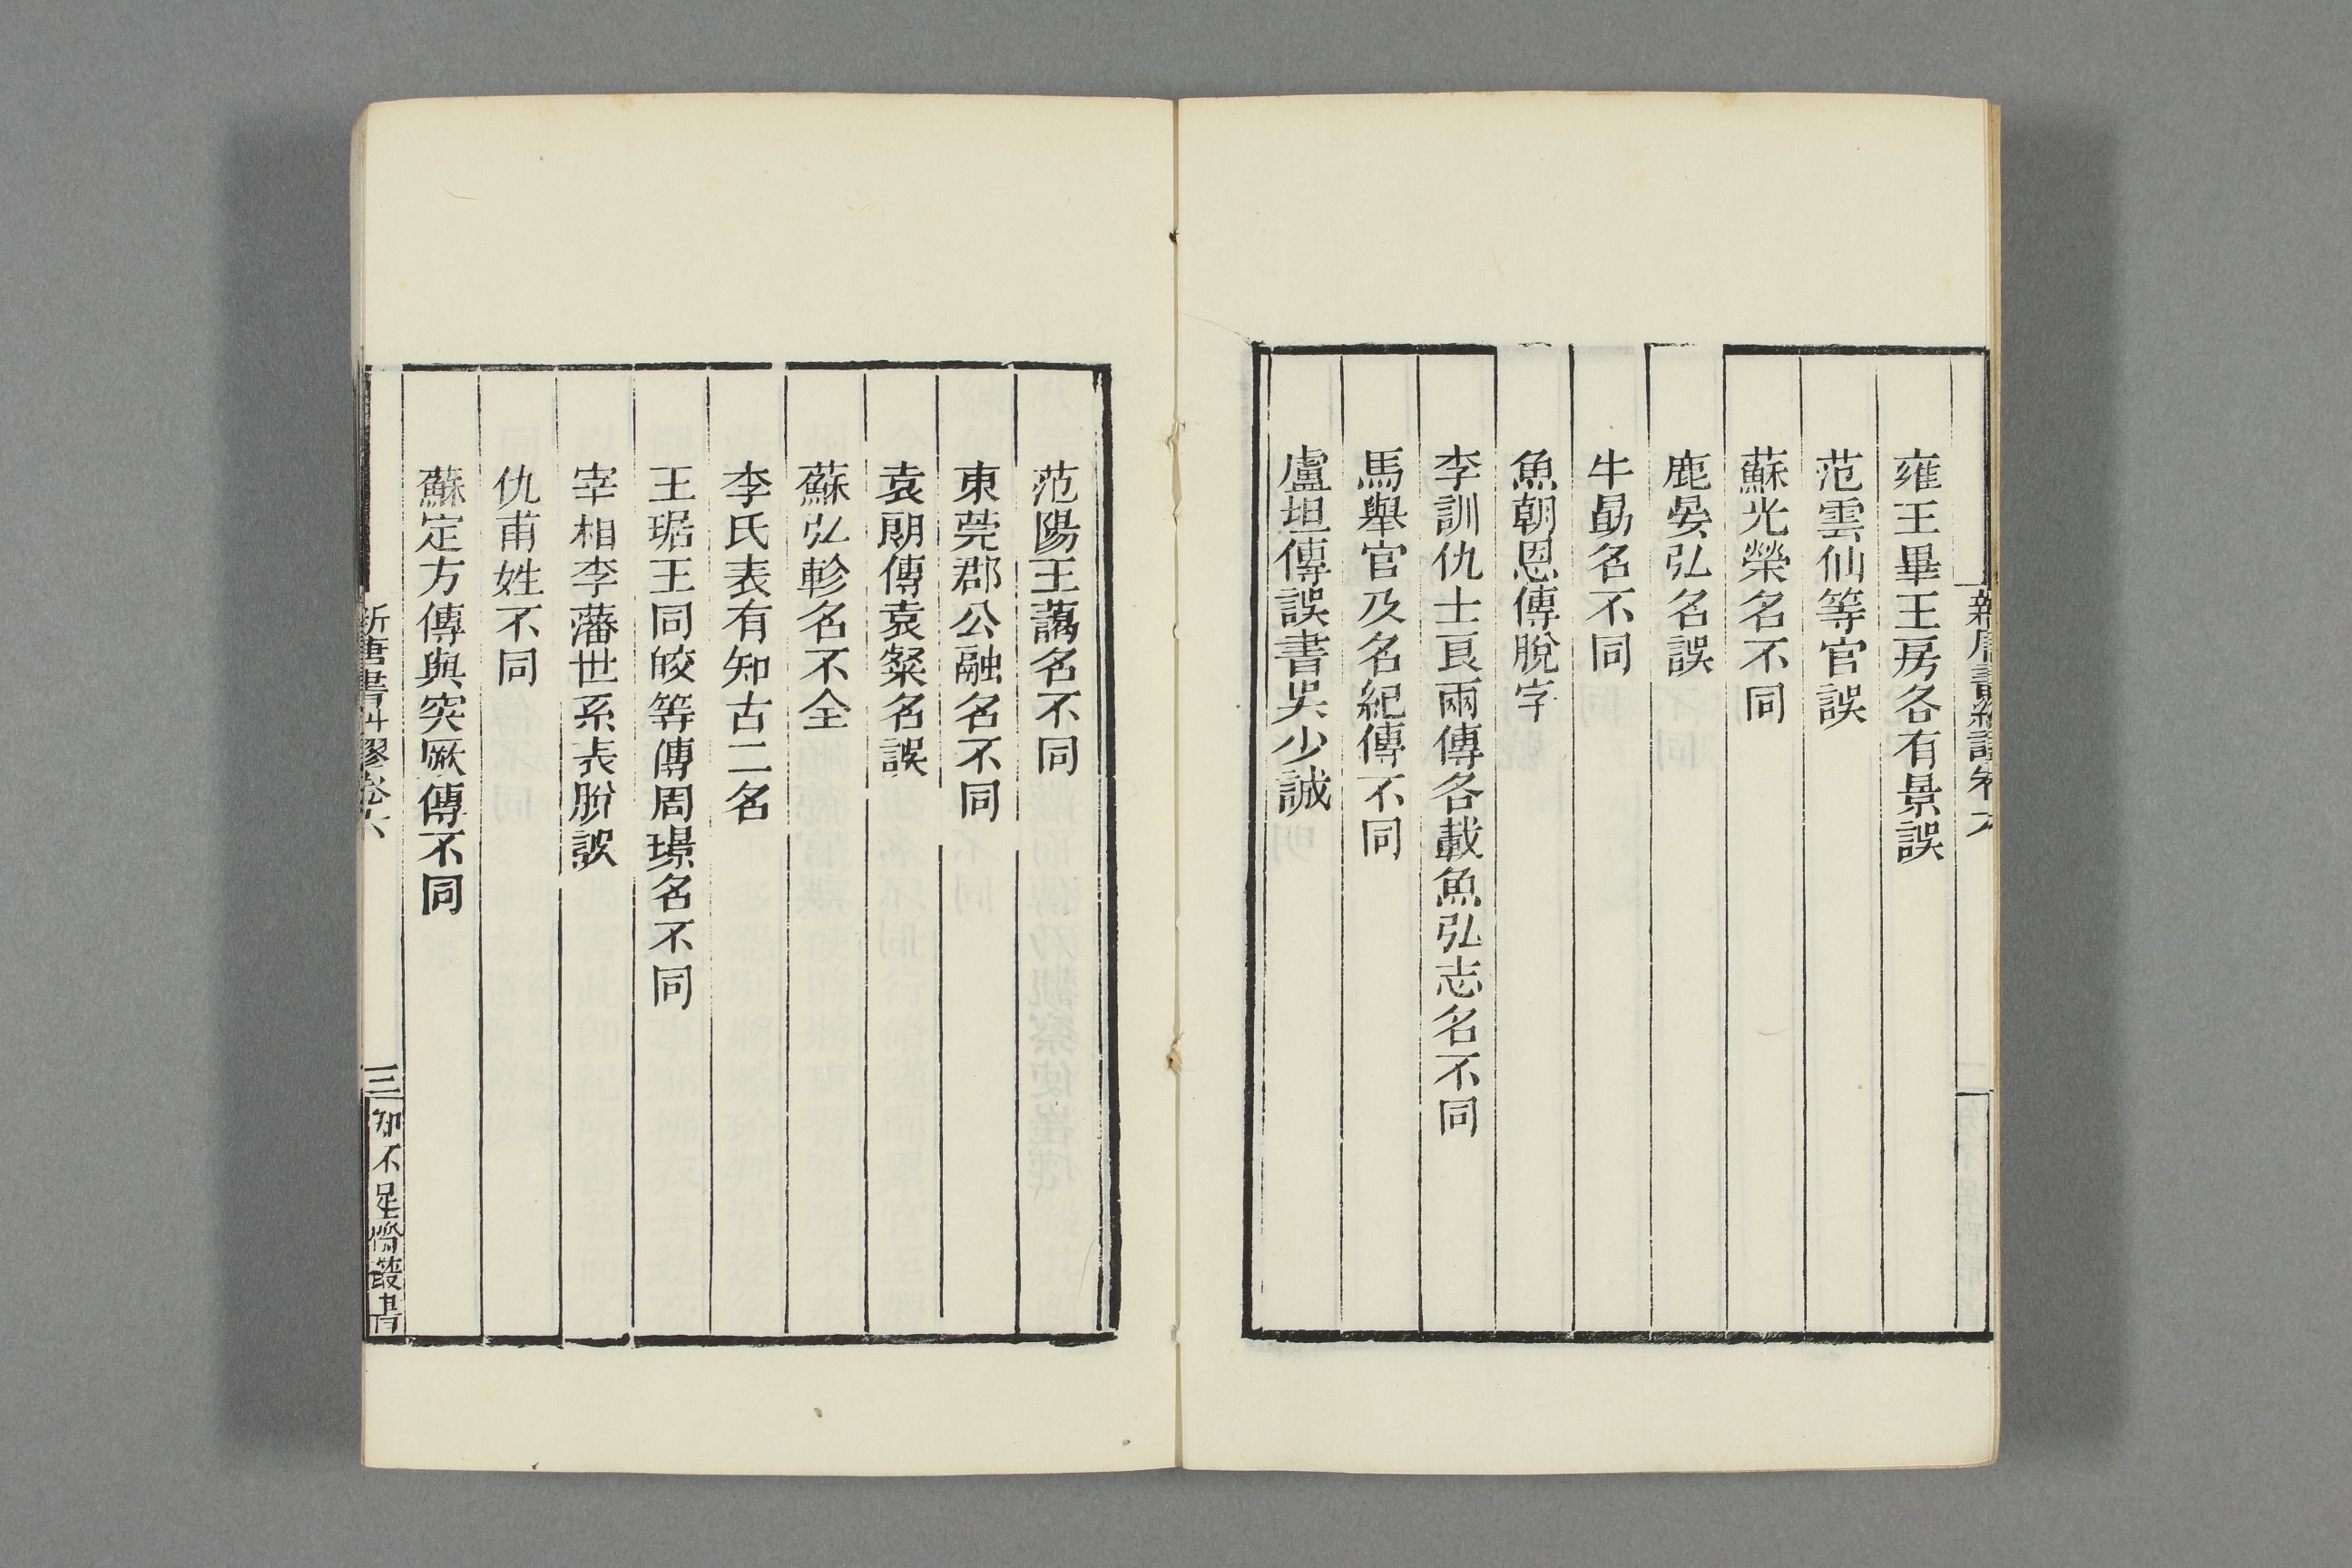 新唐書糾謬卷六
雍王畢王房各有景誤
范雲仙等官誤
蘇光榮名不同
鹿晏弘名誤
牛勗名不同
魚朝恩傳脫字
李訓仇士良兩傳各載魚弘志名不同
馬舉官及名紀傳不同
盧坦傳誤書吳少誠
范陽王藹名不同
東莞郡公融名不同
袁朗傳袁粲名誤
蘇弘軫名不全
李氏表有知古二名
王琚王同皎等傳周璟名不同
宰相李藩世系表脫誤
仇甫姓不同
蘇定方傳與突厥傳不同
新唐書糾謬卷六
三
知不足齋叢書